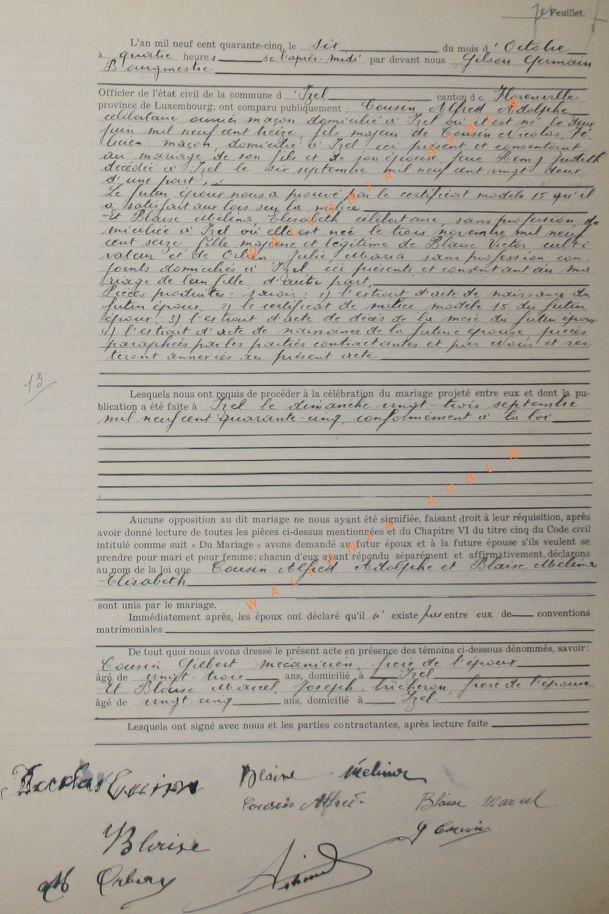 7e Feuillet.
L'an mil neuf cent quarante-cinq, le six du mois d'Octobre
à quatre heures de l'après-midi par devant nous Gilson Germain
Bourgmestre
Officier de l'état civil de la commune d'Izel canton de Florenville
province de Luxembourg, ont comparu publiquement : Cousin Alfred Adolphe
célibataire, ouvrier maçon domicilié à Izel où il est né le
juin mil neuf cent treize, fils majeur de Cousin Nicolas,
maçon, domicilié à Izel ici présent et consentant
au mariage de son fils et de son épouse, feue Henry Judith
décédée à Izel le six septembre mil neuf cent vingt deux,
d'une part,
Le futur époux nous a prouvé par le certificat modèle 15 qu'il
a satisfait aux lois sur la milice
Et Blaise Mélina Elisabeth célibataire, sans profession, do-
miciliée à Izel où elle est née le trois novembre mil neuf
cent seize, fille majeure et légitime de Blaise Victor culti
vateur et de Julie Maria sans profession con-
joints domiciliés à Izel ici présents et consentant au ma
riage de leur fille d'autre part.
Pièces produites : savoir : 1) l'extrait d'acte de naissance du
futur époux, 2) le certificat de milice modèle 15 du futur
époux, 3) l'extrait d'acte de décès de la mère du futur époux
4) l'extrait d'acte de naissance de la future épouse, pièces
paraphées par les parties contractantes et par nous et res
teront annexées au présent acte.
13
Lesquels nous ont requis de procéder à la célébration du mariage projeté entre eux et dont la pu-
blication a été faite à Izel le dimanche vingt-trois septembre
mil neuf cent quarante-cinq, conformément à la loi
Aucune opposition au dit mariage ne nous ayant été signifiée, faisant droit à leur réquisition, après
avoir donné lecture de toutes les pièces ci-dessus mentionnées et du Chapitre VI du titre cinq du Code civil
intitulé comme suit « Du Mariage » avons demandé au futur époux et à la future épouse s'ils veulent se
prendre pour mari et pour femme; chacun d'eux ayant répondu séparément et affirmativement, déclarons
au nom de la loi que Cousin Alfred Adolphe et Blaise Mélina
Elisabeth
sont unis par le mariage.
Immédiatement après, les époux ont déclaré qu'il n'existe pas entre eux de conventions
matrimoniales
De tout quoi nous avons dressé le présent acte en présence des témoins ci-dessous dénommés, savoir:
Cousin Gilbert mécanicien, frère de l'époux
âgé de vingt-trois ans, domicilié à Izel
Et Blaise Marcel, Joseph, bûcheron, frère de l'épouse
âgé de vingt cinq ans, domicilié à Izel.
Lesquels ont signé avec nous et les parties contractantes, après lecture faite
Nicolas Cousin
Blaise Mélina
Cousin Alfred
Blaise Marcel
Blaise
G Cousin
WALLONIA ASBL
WALLONIA ASBL